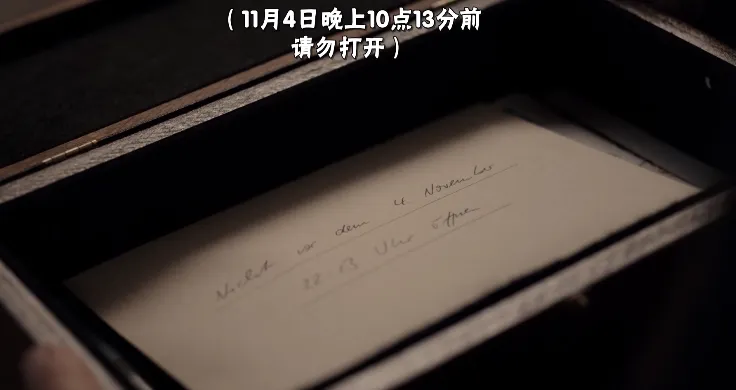 （11月4日晚上10点13分前
请勿打开）
Nicht vor dem 4. November
22 13 Uhr öffnen